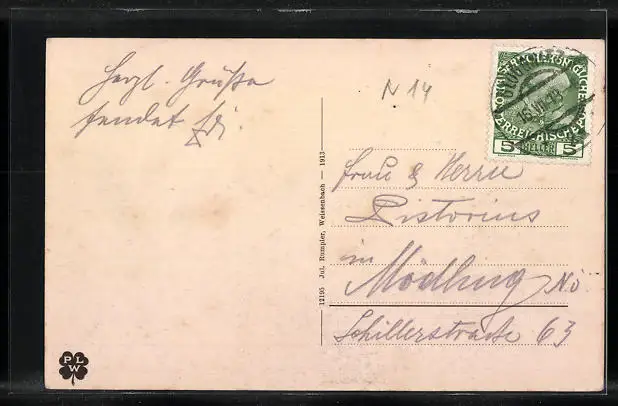 Herzl. Grüße
sendet
N 14
KAISERL. KÖNIGLICHE
ÖSTERREICHISCHE POST
5 HELLER 5
16.VII.13
Frau & Herrn
Pistorius
in
Mödling N.Ö.
Schillerstraße 63
12195 Jul. Rumpler, Weissenbach — 1913
P L W